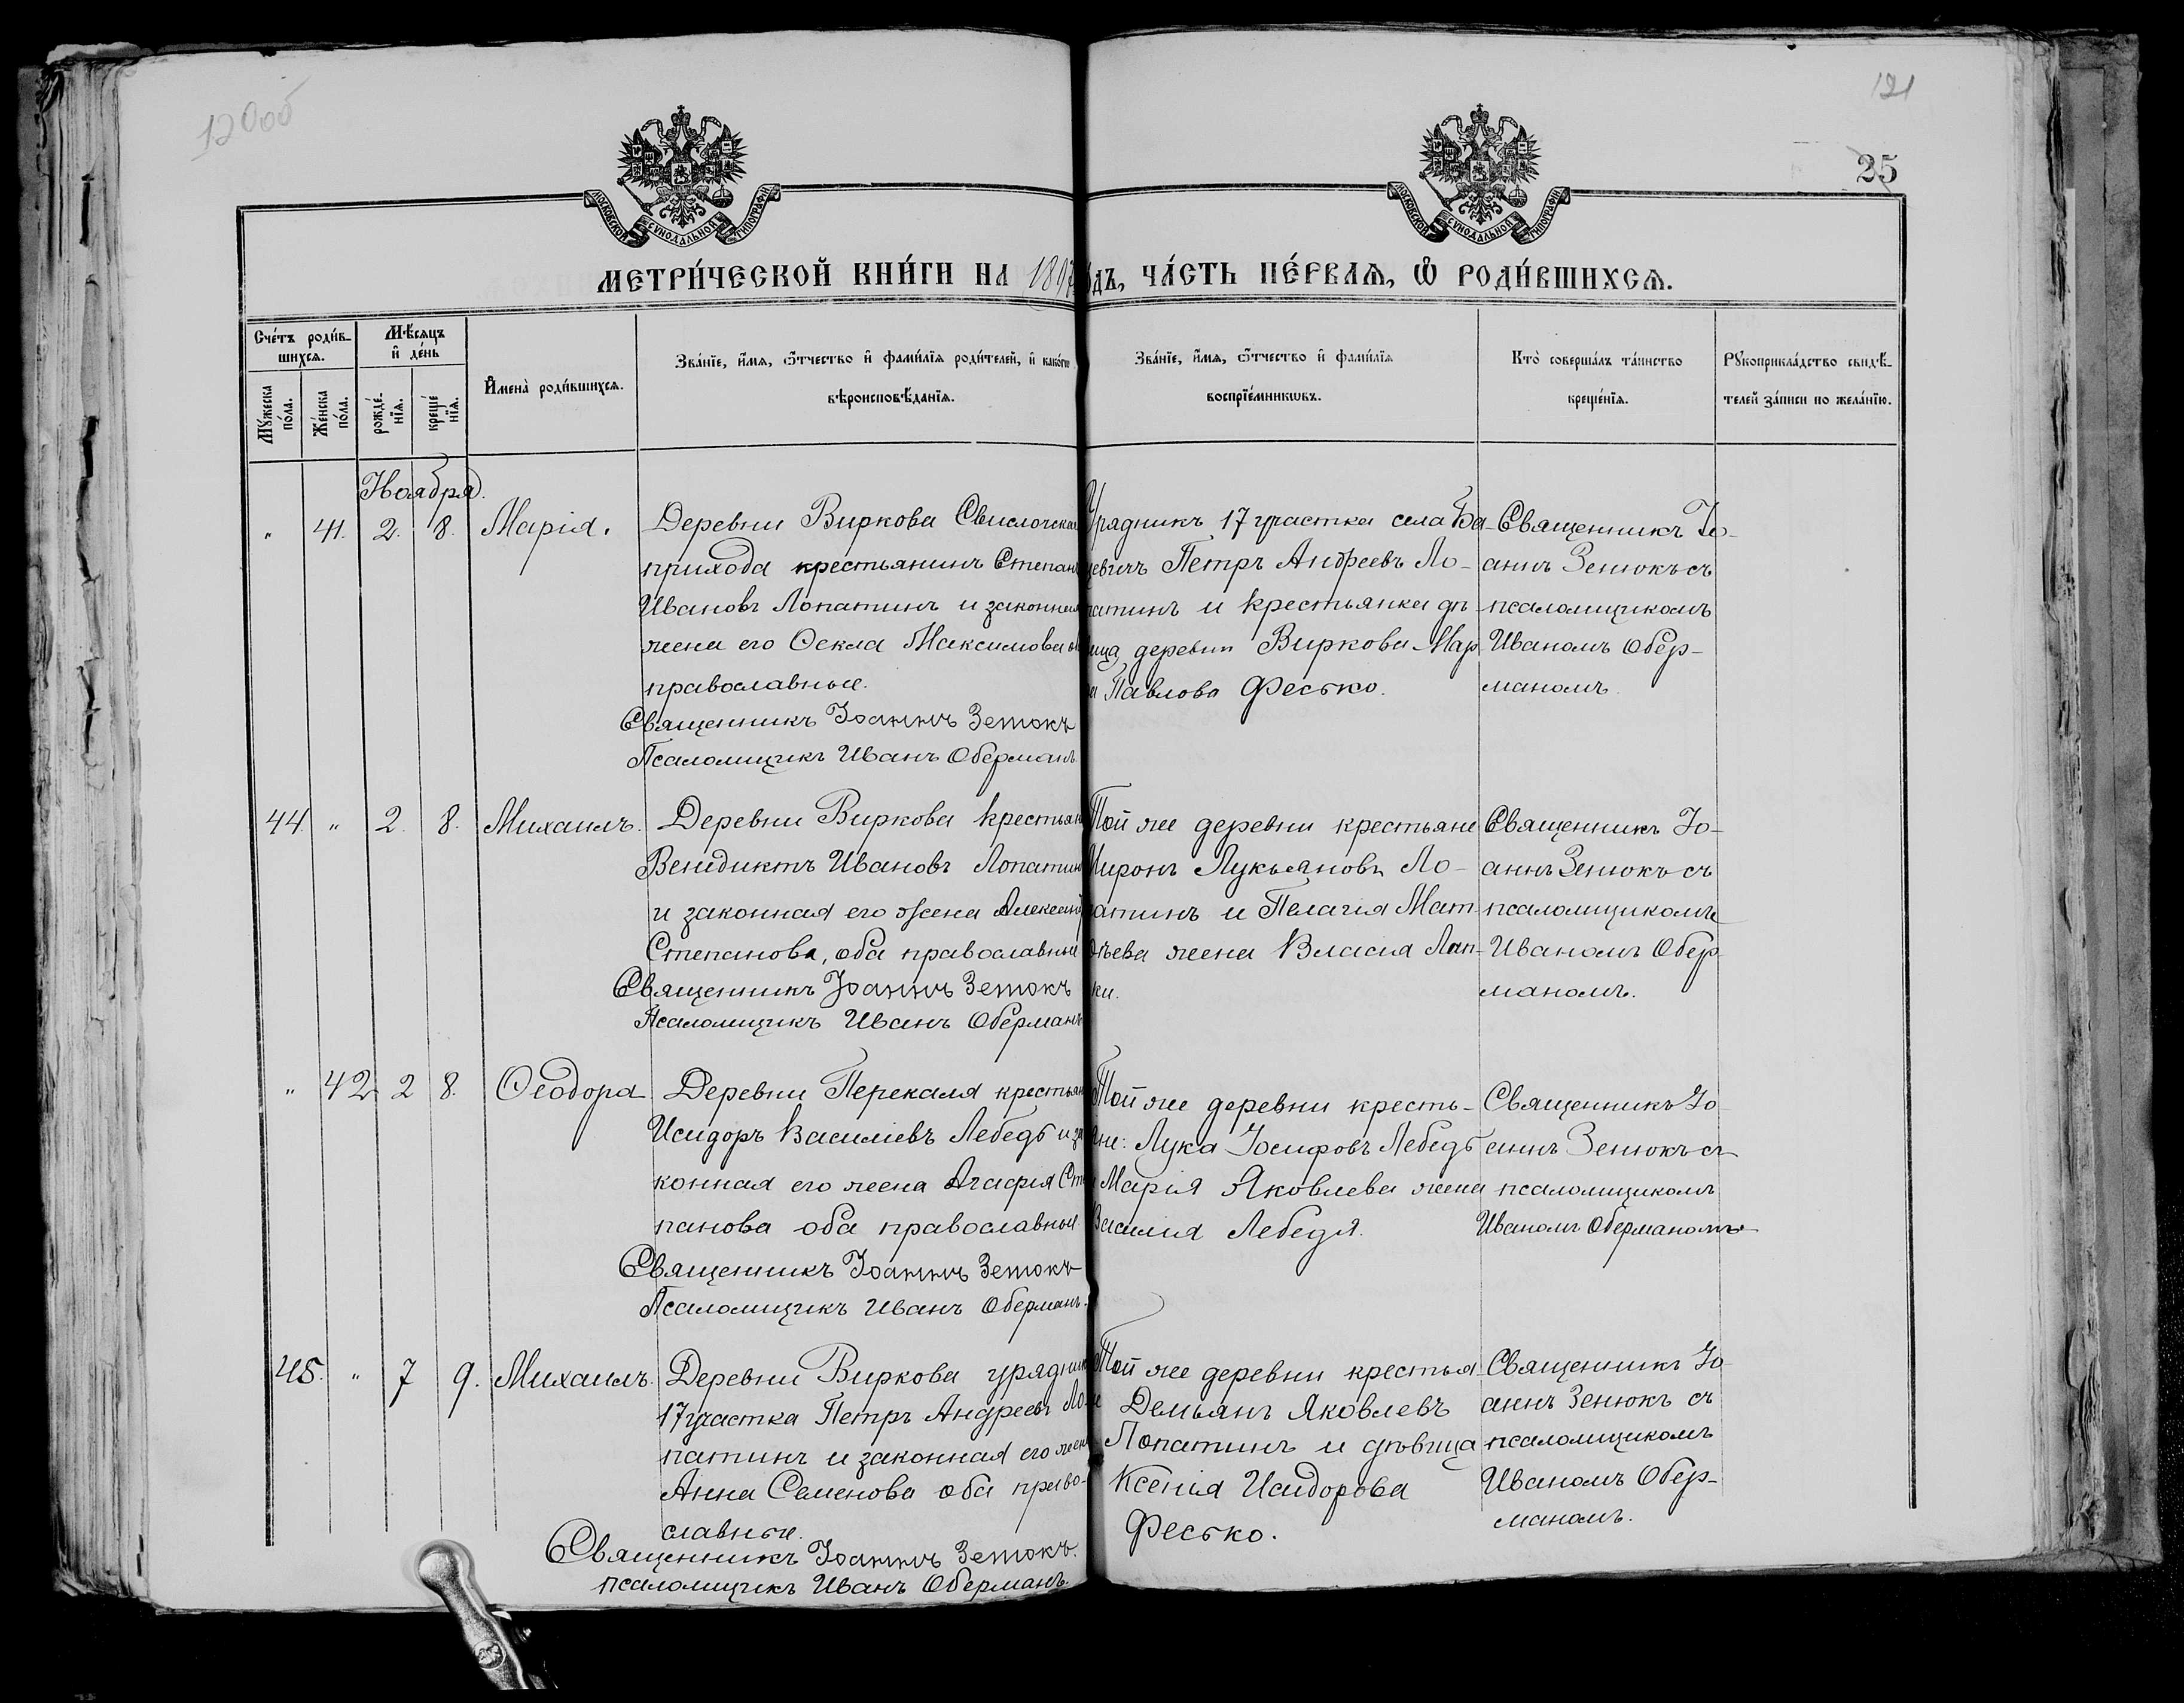 120об
121
25
МОСКОВСКОЙ СѴНОДАЛЬНОЙ ТИПОГРАФІИ
МОСКОВСКОЙ СѴНОДАЛЬНОЙ ТИПОГРАФІИ
МЕТРИ́ЧЕСКОЙ КНИ́ГИ НА 1897
ОДЪ, ЧА́СТЬ ПЕ́РВАѦ, Ѽ РОДИ́ВШИХСѦ.
Сче́тъ роди́в-
шихсѧ.
Мѣ́сѧцъ
и҆ де́нь
Мꙋ́жеска
по́ла.
Же́нска
по́ла.
рожде́-
нїѧ.
креще́
нїѧ.
И҆мена̀ роди́вшихсѧ.
Зва́нїе, и҆́мѧ, ѻ҆́тчество и҆ фами́лїѧ роди́телей, и҆ како́гѡ
вѣроисповѣ́данїѧ.
Зва́нїе, и҆́мѧ, ѻ҆́тчество и҆ фами́лїѧ
воспрїе́мникѡвъ.
Кто̀ соверша́лъ та́инство
креще́нїѧ.
Рꙋкоприкла́дство свидѣ́-
телей за́писи по жела́нїю.
Ноября.
" 41. 2. 8. Марія.
Деревни Виркова Свислочска
прихода крестьянинъ Степан
Ивановъ Лопатинъ и законная
жена его Ѳекла Максимова об
православные.
Священникъ Іоаннъ Зенюкъ
Псаломщикъ Иванъ Оберманъ.
Урядникъ 17 участка села Ба-
цевичъ Петръ Андреевъ Ло-
патинъ и крестьянка дѣ-
вица деревни Виркова Мар
а Павлова Фесько.
Священникъ Іо-
аннъ Зенюкъ съ
псаломщикомъ
Иваномъ Обер-
маномъ.
44. " 2. 8. Михаилъ.
Деревни Виркова крестьян
Венидиктъ Ивановъ Лопатин
и законная его жена Александ
Степанова, оба православные
Священникъ Іоаннъ Зенюкъ
Псаломщикъ Иванъ Оберманъ
Той же деревни крестьяне
Миронъ Лукьяновъ Ло-
патинъ и Пелагія Мат-
ѳѣева жена Власія Лап-
ки.
Священникъ Іо-
аннъ Зенюкъ съ
псаломщикомъ
Иваномъ Обер-
маномъ.
" 42 2 8. Ѳеодора
Деревни Перекаля крестьян
Исидоръ Василіевъ Лебедь и за
конная его жена Агафія Сте
панова оба православные.
Священникъ Іоаннъ Зенюкъ
Псаломщикъ Иванъ Оберманъ.
Той же деревни кресть-
яне: Лука Іосифовъ Лебедь
и Марія Яковлева жена
Василія Лебедя.
Священникъ Іо-
аннъ Зенюкъ съ
псаломщикомъ
Иваномъ Оберманомъ
45. " 7 9. Михаилъ.
Деревни Виркова урядник
17 участка Петръ Андреевъ Ло-
патинъ и законная его жена
Анна Семенова оба право-
славные.
Священникъ Іоаннъ Зенюкъ.
псаломщикъ Иванъ Оберманъ.
Той же деревни крестья
не Демьянъ Яковлевъ
Лопатинъ и дѣвица
Ксенія Исидорова
Фесько.
Священникъ Іо-
аннъ Зенюкъ съ
псаломщикомъ
Иваномъ Обер-
маномъ.